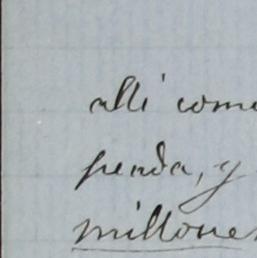 alli com
penda, y
millones